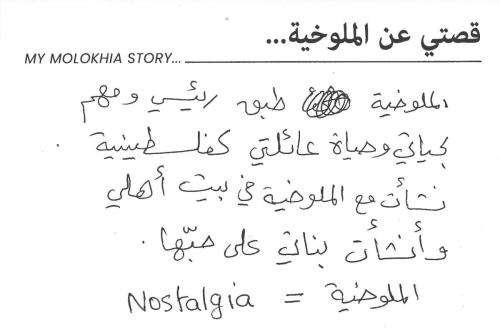 قصتي عن الملوخية...
MY MOLOKHIA STORY...
الملوخية طبق رئيسي ومهم
بحياتي وحياة عائلتي كفلسطينية.
نشأت مع الملوخية في بيت أهلي
وأنشأت بناتي على حبّها.
الملوخية = Nostalgia